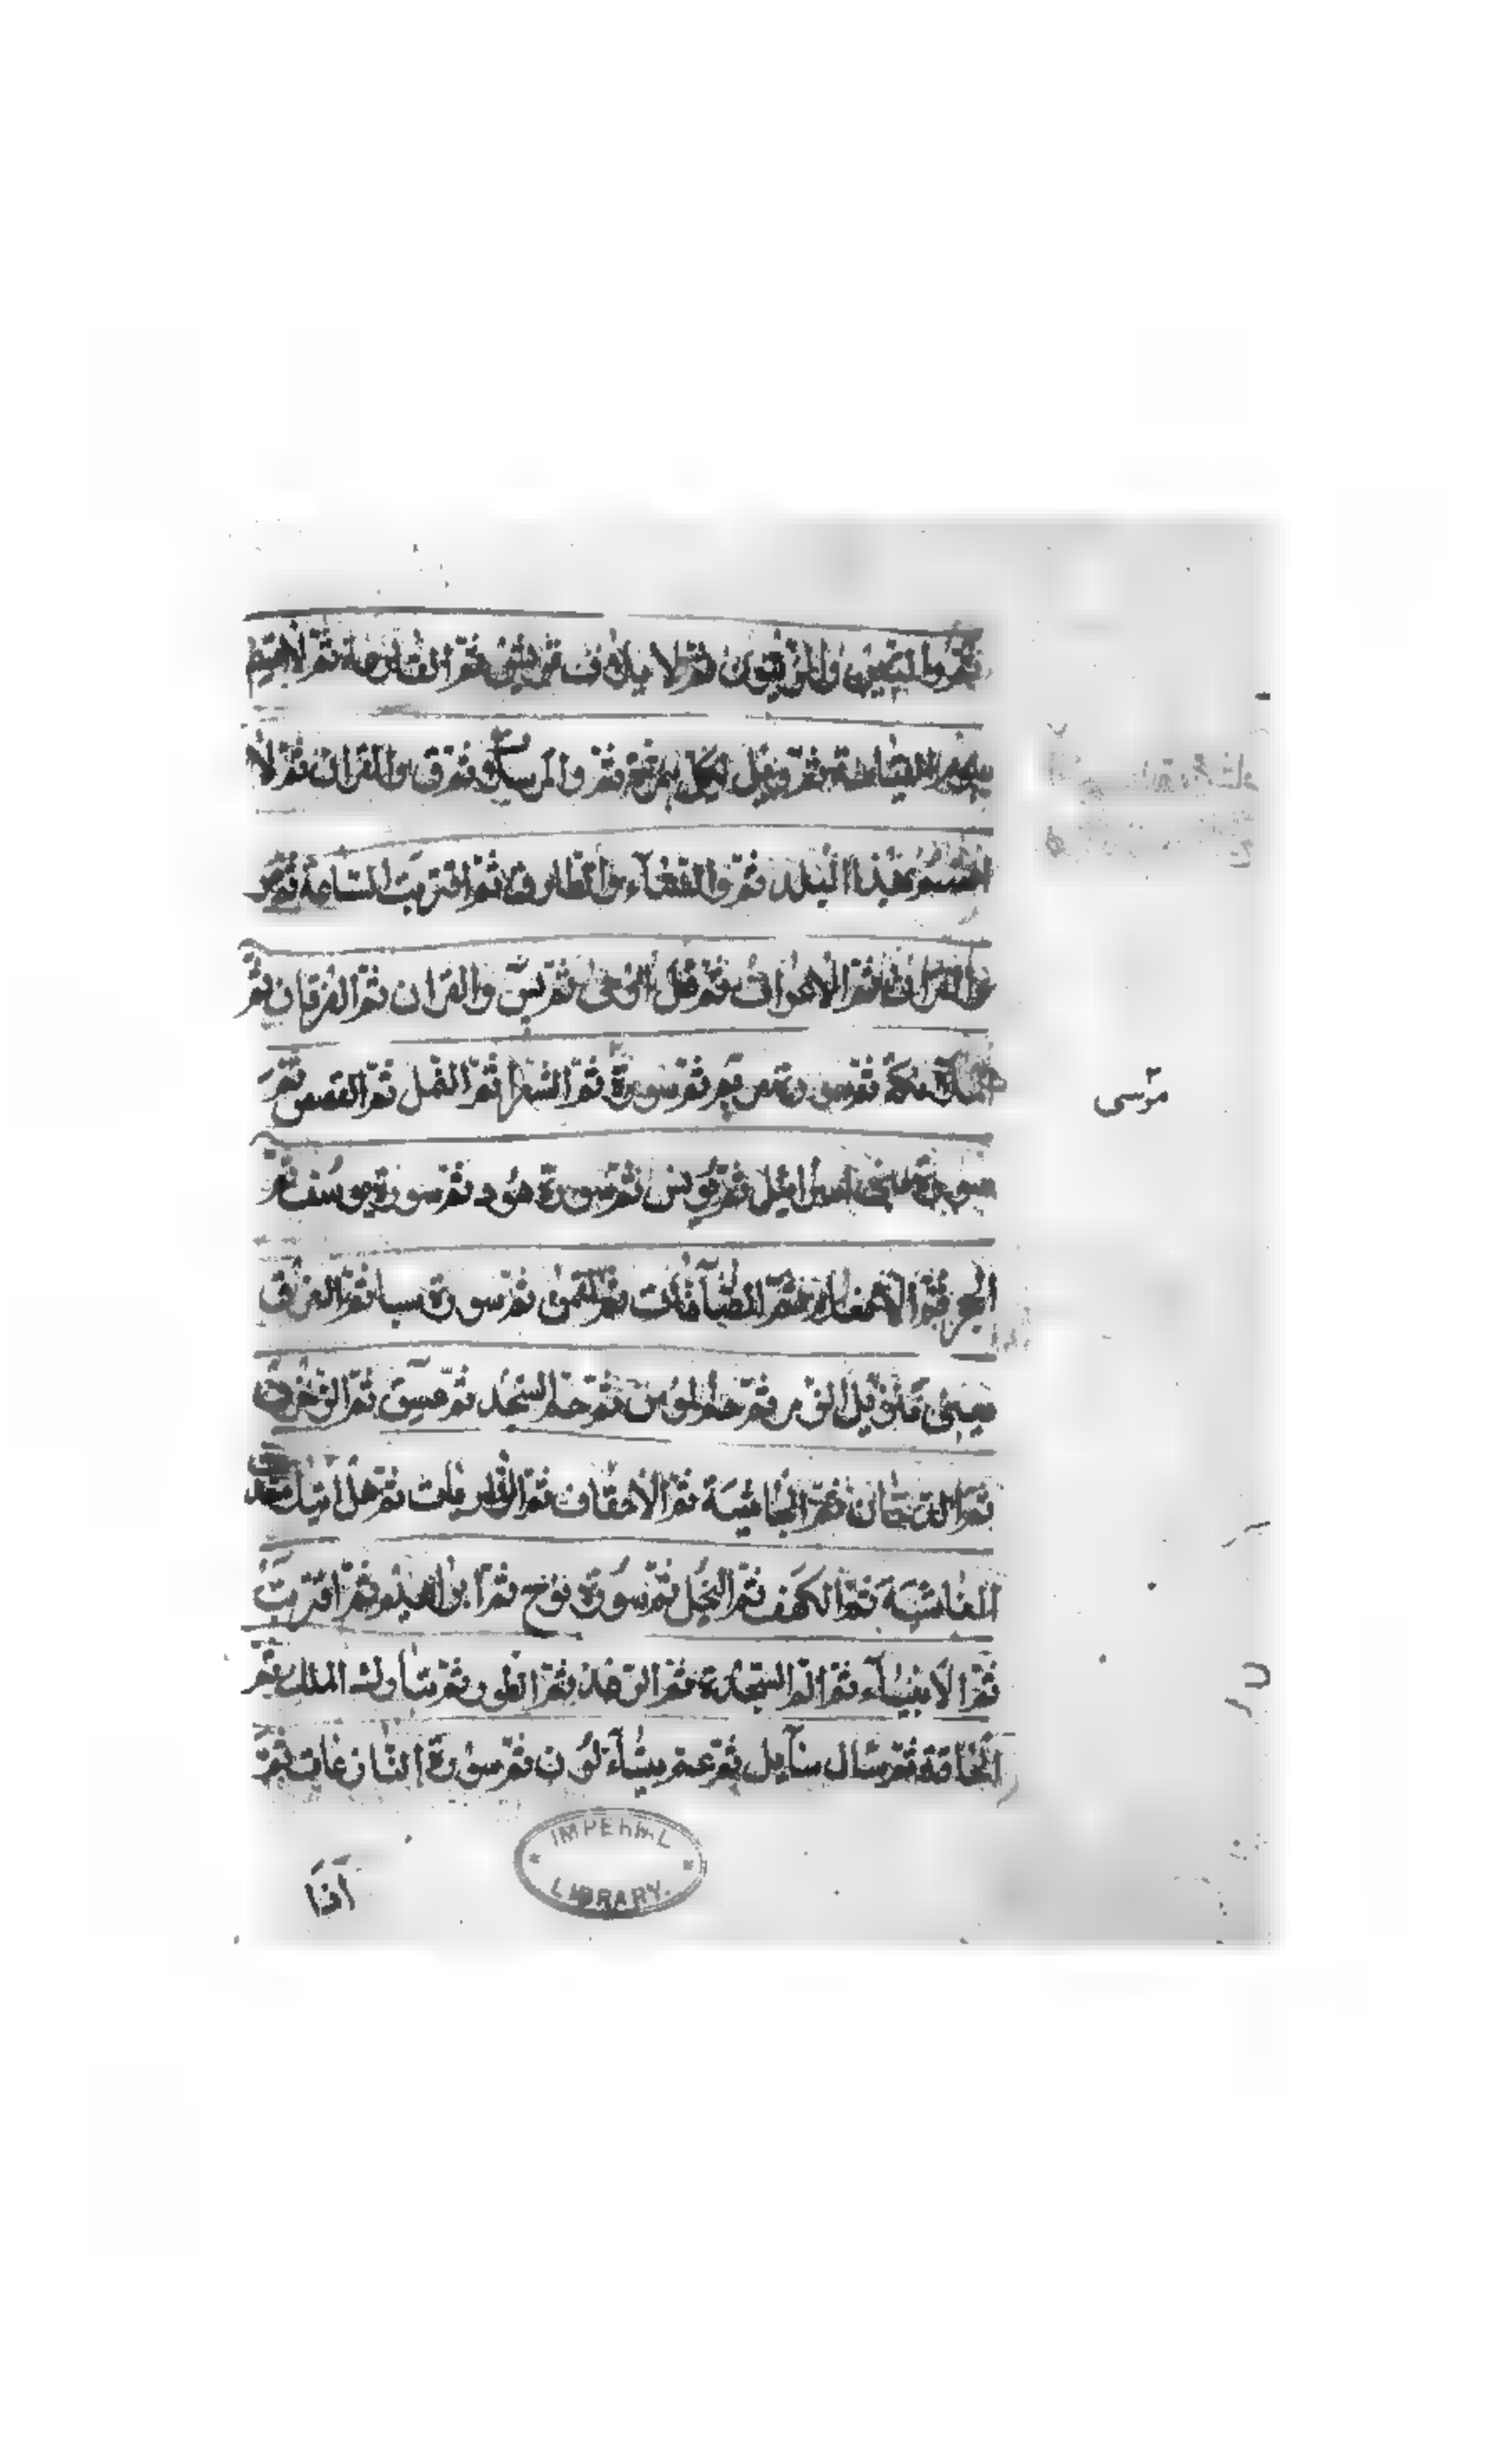 ثم والتين والزيتون ثم لايلاف قريش ثم القارعة ثم لا اقسم
بيوم القيامة ثم ويل لكل همزة ثم والمرسلات ثم ق والقران ثم لا
اقسم بهذا البلد ثم والسماء والطارق ثم اقتربت الساعة ثم ص
والقران ثم الاعراف ثم قل اوحى ثم يس والقران ثم الفرقان ثم
الملائكة ثم سورة مريم ثم سورة ثم الشعرا ثم النمل ثم القصص ثم
موسى
سورة بنى اسرائيل ثم يونس ثم سورة هود ثم سورة يوسف ثم
الحجر ثم الانعام ثم الصآفات ثم لقمن ثم سورة سبا ثم الغرف
يعنى تنزيل الزمر ثم حم المؤمن ثم حم السجدة ثم عسق ثم الزخرف
ثم الدخان ثم الجاثية ثم الاحقاف ثم الذاريات ثم هل اتيك حديث
الغاشية ثم الكهف ثم النحل ثم سورة نوح ثم ابراهيم ثم اقتربت
ثم الانبيآء ثم الم السجدة ثم الرعد ثم الطور ثم تبارك الملك ثم
الحاقة ثم سال سآيل ثم عم يتسآءلون ثم سورة النازعات ثم
اذا
IMPERIAL
LIBRARY.